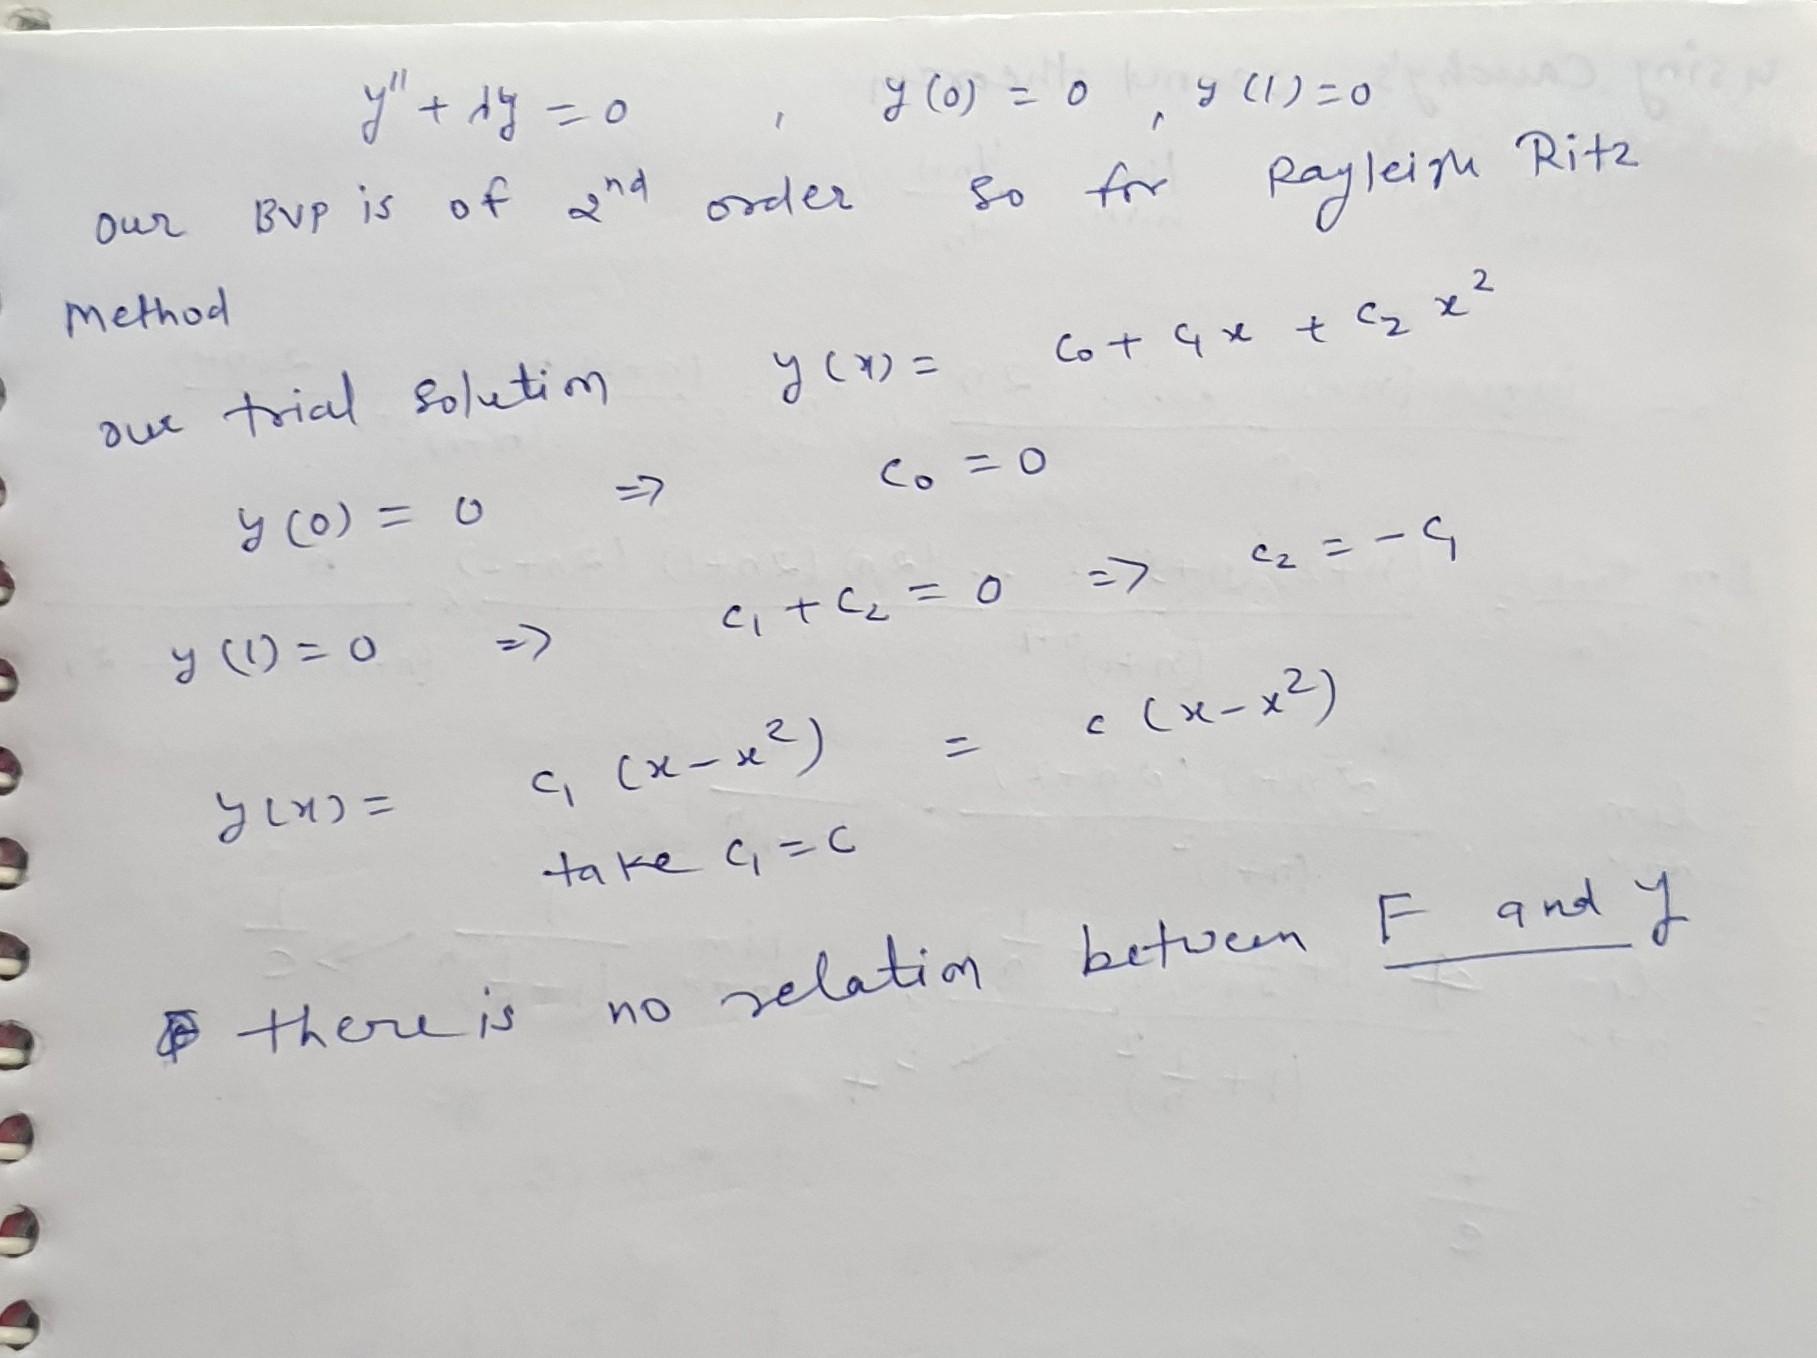 y'' + λy = 0 , y(0) = 0 , y(1) = 0
our BVP is of 2nd order so for Rayleigh Ritz
method
our trial solution y(x) = c₀ + c₁x + c₂x²
y(0) = 0 => c₀ = 0
y(1) = 0 => c₁ + c₂ = 0 => c₂ = -c₁
y(x) = c₁(x-x²) = c(x-x²)
take c₁ = c
there is no relation between F and y